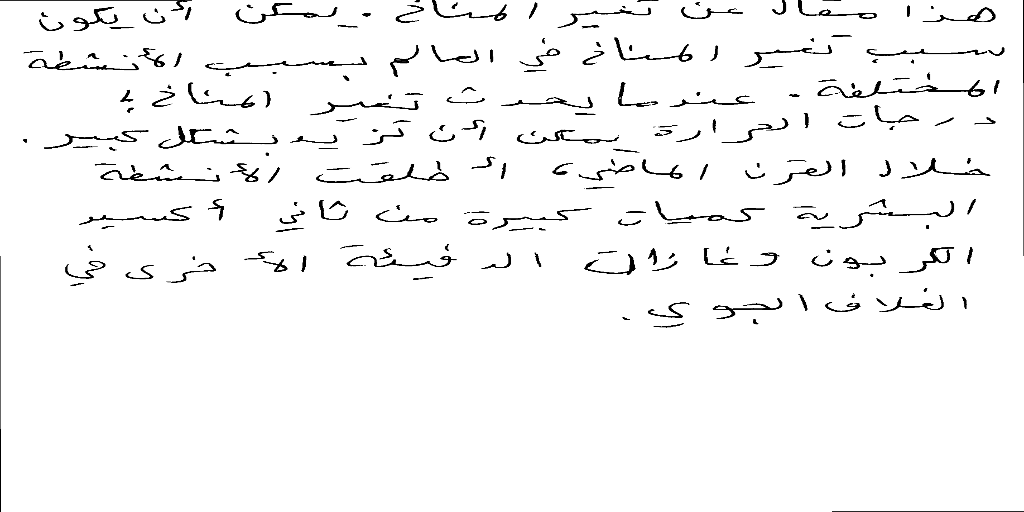 هذا مقال عن تغير المناخ. يمكن أن يكون
سبب تغير المناخ في العالم بسبب الأنشطة
المختلفة. عندما يحدث تغير المناخ؛
درجات الحرارة يمكن أن تزيد بشكل كبير.
خلال القرن الماضي، أطلقت الأنشطة
البشرية كميات كبيرة من ثاني أكسيد
الكربون وغازات الدفيئة الأخرى في
الغلاف الجوي.